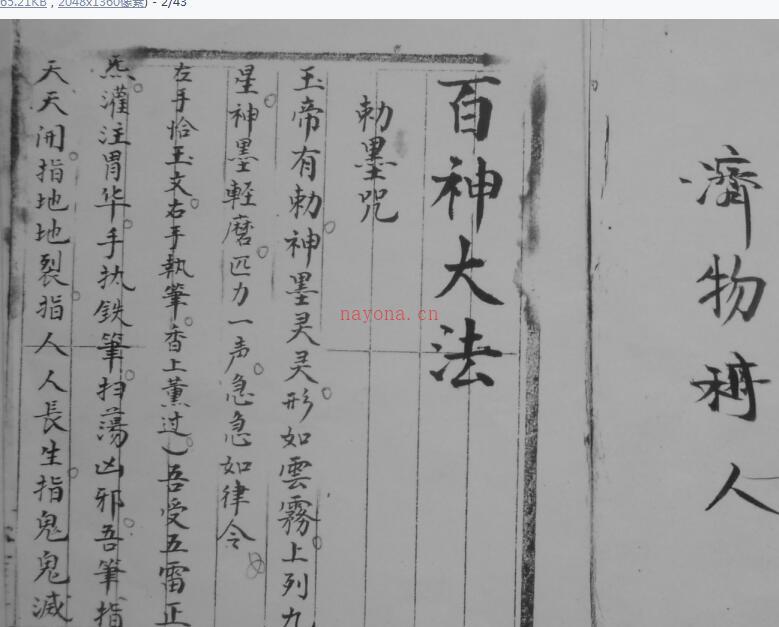 65.21KB，2048x1360像素) - 2/43
濟物利人
百神大法
勅墨咒
玉帝有勅神墨灵灵形如雲霧上列九
星神墨軽磨匹力一声急急如律令
左手恰玉文右手執筆香上薰过乀吾受五雷正
炁灌注胃华手执铁筆扫蕩凶邪吾筆指
天天開指地地裂指人人長生指鬼鬼滅
nayona.cn